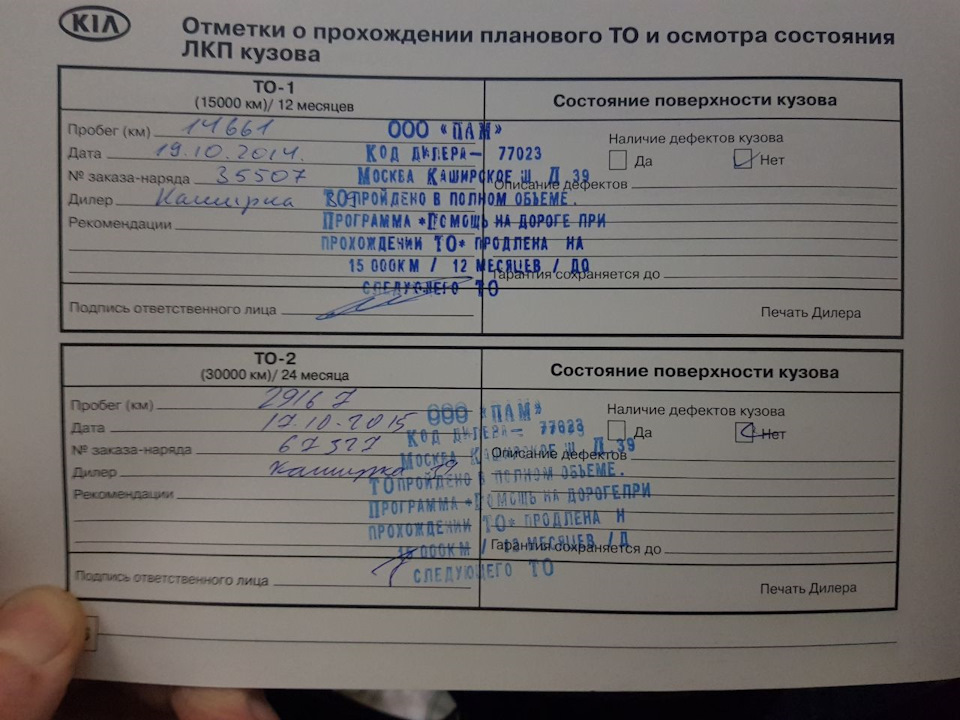 KIA
Отметки о прохождении планового ТО и осмотра состояния
ЛКП кузова
ТО-1
(15000 км)/ 12 месяцев
Состояние поверхности кузова
Пробег (км) 14661
Дата 19.10.2014.
№ заказа-наряда 35507
Дилер Каширка
Рекомендации
Подпись ответственного лица
ООО «ПАМ»
КОД ДИЛЕРА— 77023
МОСКВА КАШИРСКОЕ Ш. Д 39
ПРОЙДЕНО В ПОЛНОМ ОБЪЕМЕ.
ПРОГРАММА *ПОМОЩЬ НА ДОРОГЕ ПРИ
ПРОХОЖДЕНИИ ТО* ПРОДЛЕНА НА
15 000КМ / 12 МЕСЯЦЕВ / ДО
СЛЕДУЮЩЕГО ТО
Наличие дефектов кузова
Да Нет
Описание дефектов
Гарантия сохраняется до
Печать Дилера
ТО-2
(30000 км)/ 24 месяца
Состояние поверхности кузова
Пробег (км) 29167
Дата 17.10.2015
№ заказа-наряда 67327
Дилер Каширка 39
Рекомендации
Подпись ответственного лица
ООО «ПАМ»
КОД ДИЛЕРА— 77023
МОСКВА КАШИРСКОЕ Ш. Д 39
ТО ПРОЙДЕНО В ПОЛНОМ ОБЪЕМЕ.
ПРОГРАММА *ПОМОЩЬ НА ДОРОГЕ ПРИ
ПРОХОЖДЕНИИ ТО* ПРОДЛЕНА Н
15 000КМ / 12 МЕСЯЦЕВ / Д
СЛЕДУЮЩЕГО ТО
Наличие дефектов кузова
Да Нет
Описание дефектов
Гарантия сохраняется до
Печать Дилера